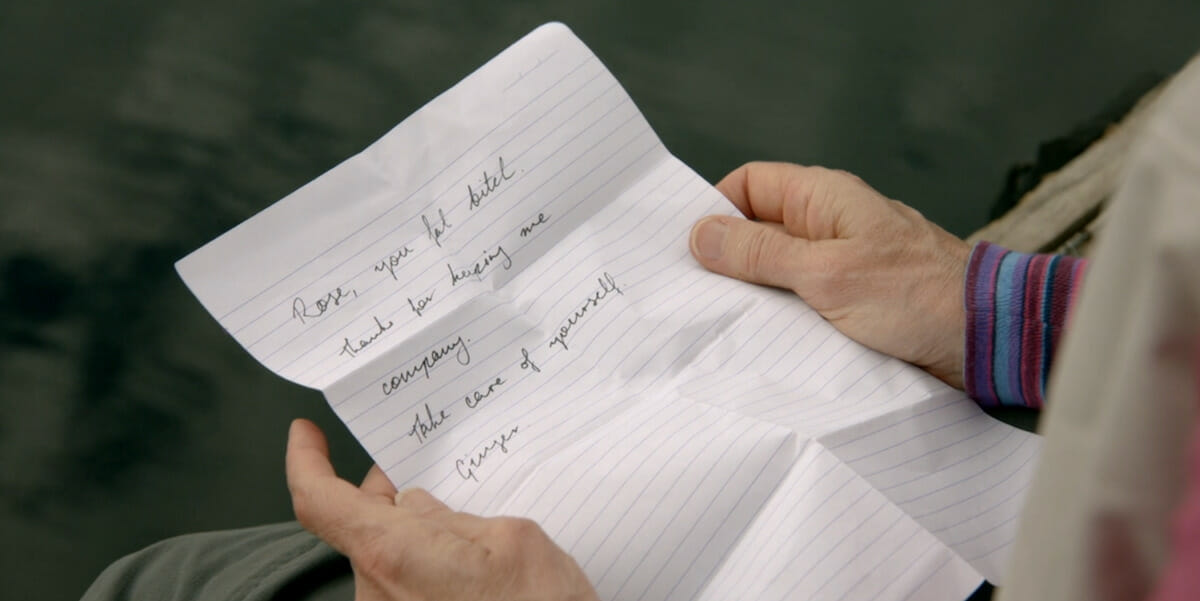 Rose, you fat bitch.
Thanks for keeping me
company.
Take care of yourself.
Ginger